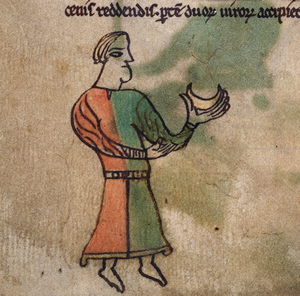 cenis reddendis. ꝑtē duoꝝ uiroꝝ accipiet